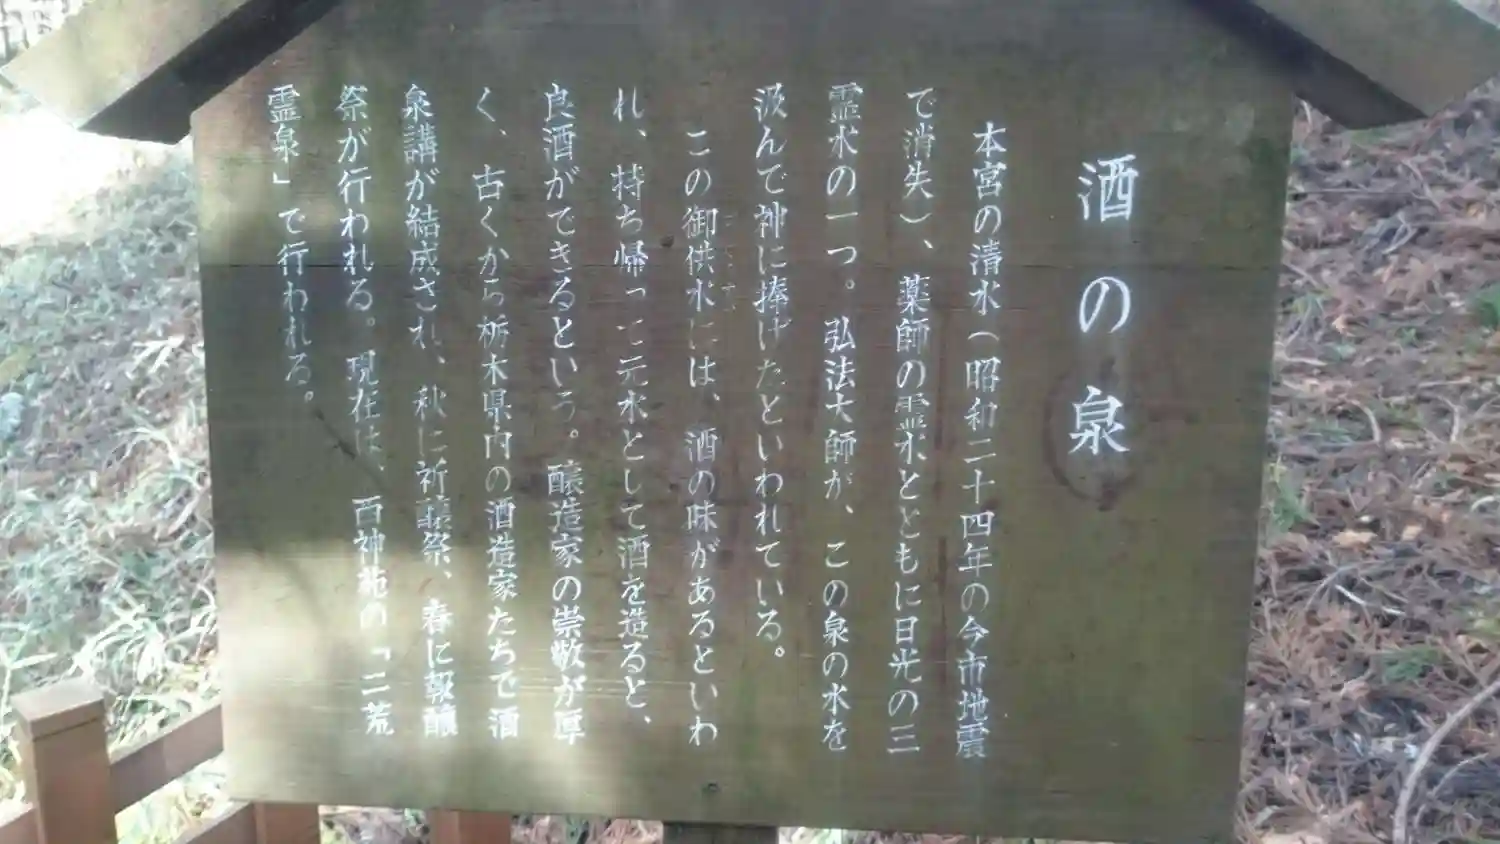 酒の泉
本宮の清水（昭和二十四年の今市地震
で消失）、薬師の霊水とともに日光の三
霊水の一つ。弘法大師が、この泉の水を
汲んで神に捧げたといわれている。
この御供水には、酒の味があるといわ
れ、持ち帰って元水として酒を造ると、
良酒ができるという。醸造家の崇敬が厚
く、古くから栃木県内の酒造家たちで酒
泉講が結成され、秋に祈醸祭、春に報醸
祭が行われる。現在は、百神苑の「二荒
霊泉」で行われる。